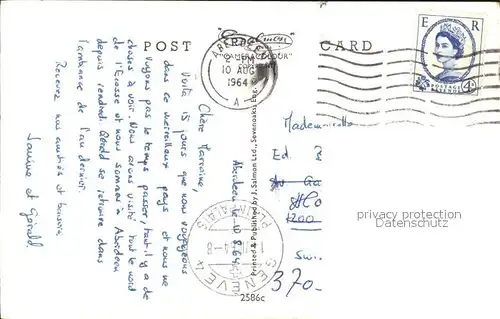 POST CARD
ABERDEEN
10 AUG
1964
A
E R
POSTAGE
REVENUE
4D
Aberdeen le 10.8.64
Chère Marraine,
Voilà 15 jours que nous voyageons
dans ce merveilleux pays et nous ne
voyons pas le temps passer, tant il y a de
choses à voir. Nous avons visité tout le nord
de l'Ecosse et nous sommes à Aberdeen
depuis vendredi. Gérald se retrouve dans
l'ambiance de l'an dernier.
Recevez nos amitiés et bons
et Gérald
Printed & Published by J. Salmon Ltd., Sevenoaks, Eng.
2586c
Mademoiselle
Ed.
1200
370.-
GENEVE 4
PLAINPALAIS
privacy protection
Datenschutz